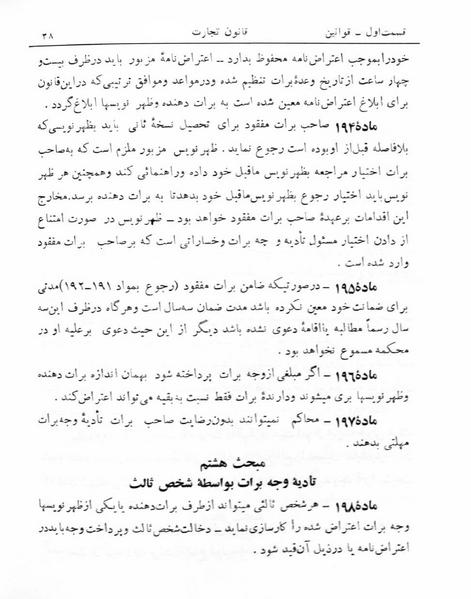 قسمت‌اول ـ قوانین قانون تجارت ۳۸
خودرابموجب اعتراض‌نامه محفوظ بدارد ـ اعتراض‌نامهٔ مزبور باید درظرف بیست‌و
چهار ساعت ازتاریخ وعدهٔ برات تنظیم شده ودرمواعد وموافق ترتیبی‌که دراین‌قانون
برای ابلاغ اعتراض‌نامه معین شده است به برات دهنده وظهر نویسها ابلاغ‌گردد .
مادهٔ۱۹۴ صاحب برات مفقود برای تحصیل نسخهٔ ثانی باید بظهرنویسی‌که
بلافاصله قبل‌از اوبوده است رجوع نماید . ظهرنویس مزبور ملزم است که‌به‌صاحب
برات اختیار مراجعه بظهرنویس ماقبل خود داده وراهنمائی کند وهمچنین هر ظهر
نویس‌باید اختیار رجوع بظهرنویس‌ماقبل خود بدهدتا به برات دهنده برسد.مخارج
این اقدامات برعهدهٔ صاحب برات مفقود خواهد بود ـ ظهرنویس در صورت امتناع
از دادن اختیار مسئول تأدیه و جه برات وخساراتی است که برصاحب برات مفقود
وارد شده است .
مادهٔ۱۹۵ ـ درصورتیکه ضامن برات مفقود (رجوع بمواد ۱۹۱-۱۹۲)مدتی
برای ضمانت خود معین نکرده باشد مدت ضمان سه‌سال است وهرگاه درظرف این‌سه
سال رسماً مطالبه یااقامهٔ دعوی نشده باشد دیگر از این حیث دعوی برعلیه او در
محکمه مسموع نخواهد بود .
مادهٔ۱۹۶ ـ اگر مبلغی ازوجه برات پرداخته شود بهمان اندازه برات دهنده
وظهرنویسها بری میشوند ودارندهٔ برات فقط نسبت به‌بقیه می‌تواند اعتراض‌کند .
مادهٔ۱۹۷ ـ محاکم نمیتوانند بدون‌رضایت صاحب برات تأدیهٔ وجه‌برات
مهلتی بدهند .
مبحث هشتم
تأدیهٔ وجه برات بواسطهٔ شخص ثالث
مادهٔ۱۹۸ ـ هرشخص ثالثی میتواند ازطرف برات‌دهنده یایکی ازظهرنویسها
وجه برات اعتراض شده را کارسازی نماید ـ دخالت‌شخص‌ثالث وپرداخت وجه‌بایددر
اعتراض‌نامه یا درذیل آن‌قید شود .